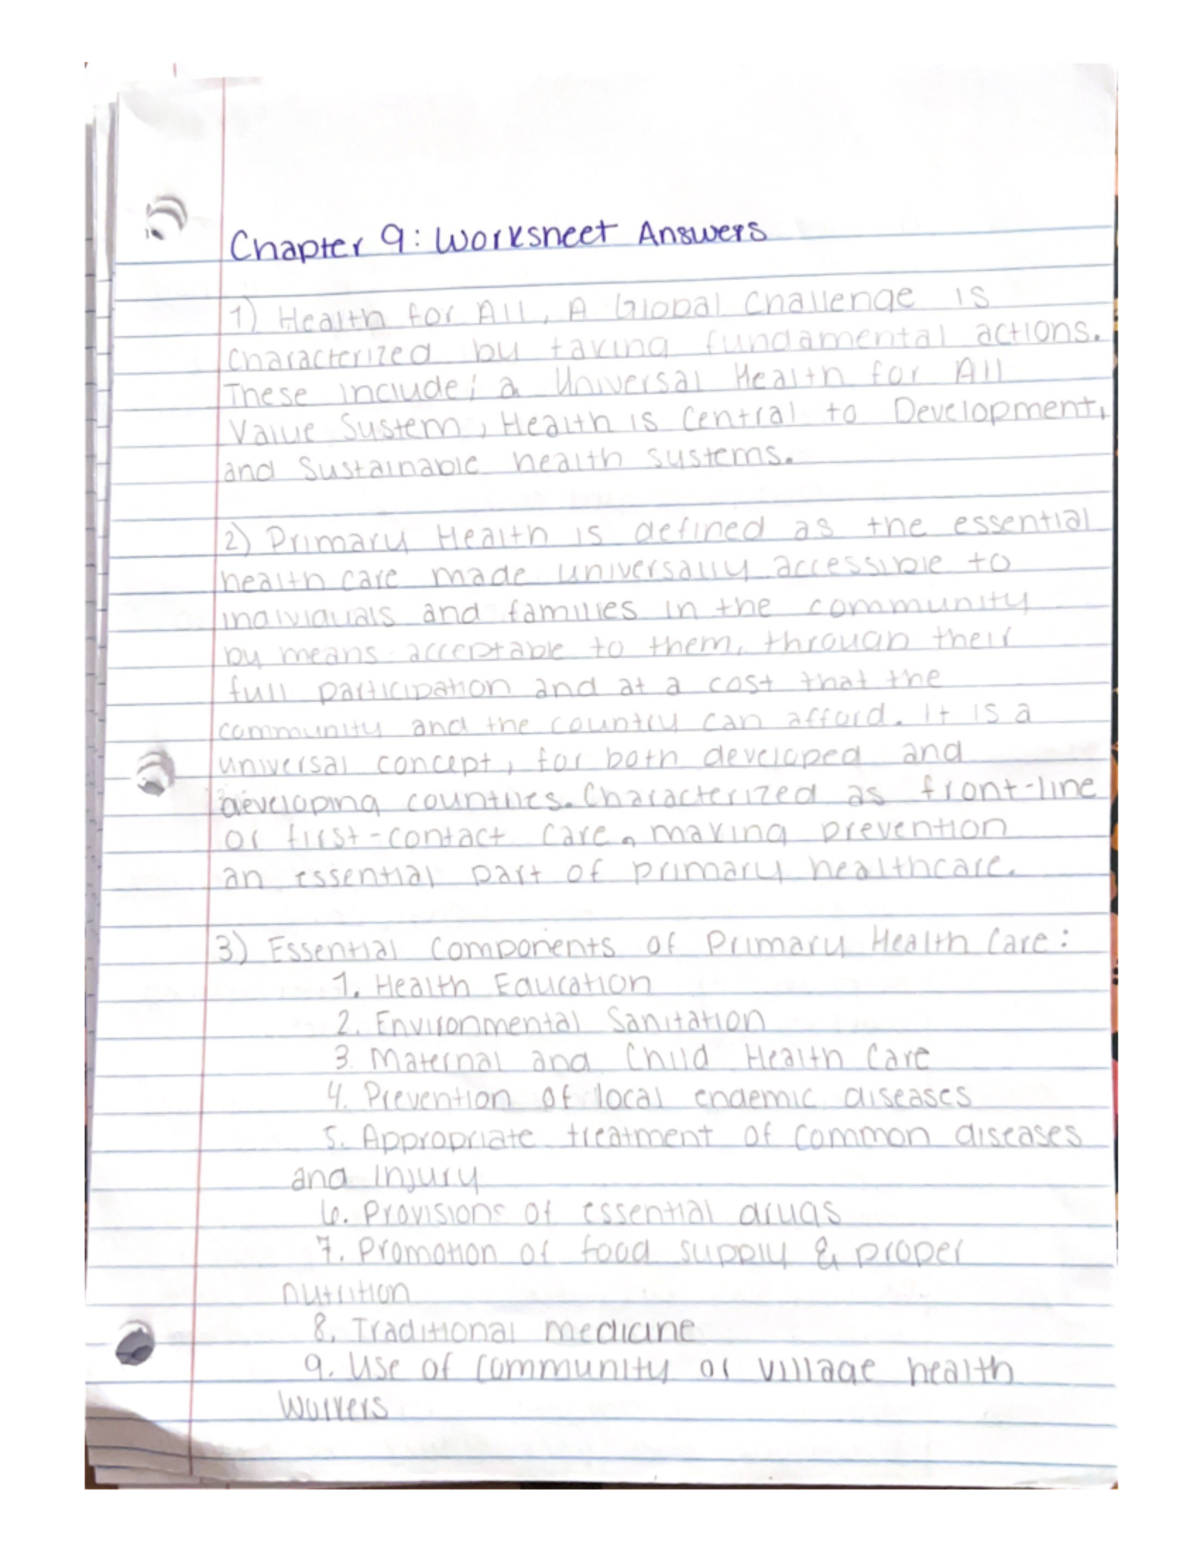 Chapter 9: Worksheet Answers
1) Health for All, A Global Challenge is
characterized by taking fundamental actions.
These include; a Universal Health for All
Value System, Health is Central to Development,
and Sustainable health systems.
2) Primary Health is defined as the essential
health care made universally accessible to
individuals and families in the community
by means acceptable to them, through their
full participation and at a cost that the
community and the country can afford. It is a
universal concept, for both developed and
developing countries. Characterized as front-line
or first-contact care, making prevention
an essential part of primary healthcare.
3) Essential Components of Primary Health Care:
1. Health Education
2. Environmental Sanitation
3. Maternal and Child Health Care
4. Prevention of local endemic diseases
5. Appropriate treatment of common diseases
and injury
6. Provisions of essential drugs
7. Promotion of food supply & proper
nutrition
8. Traditional medicine
9. Use of community or village health
workers